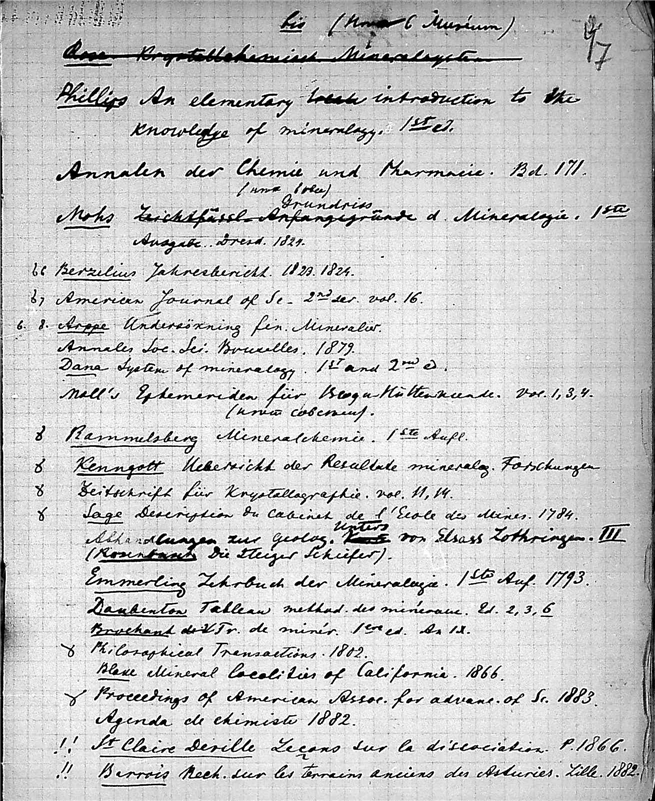 bis (Muséum)
Rose Krystallchemisch Mineralsystem
47
Phillips An elementary introduction to the
knowledge of mineralogy. 1st ed.
Annalen der Chemie und Pharmacie. Bd. 171.
Grundriss
Mohs Leichtfassl Anfangsgründe d. Mineralogie. 1ste
Ausgabe. Dresd. 1821.
Berzelius Jahresbericht. 1823. 1824.
American Journal of Sc. 2nd ser. vol. 16.
Arppe Undersökning fin. Mineralier.
Annales Soc. Sci. Bruxelles. 1879.
Dana System of mineralogy. 1st and 2nd ed.
Moll's Ephemeriden für Berg u. Hüttenkunde. vol. 1, 3, 4.
Rammelsberg Mineralchemie. 1ste Aufl.
Kenngott Uebersicht der Resultate mineralog. Forschungen
Zeitschrift für Krystallographie. vol. 11, 14.
Sage Description du Cabinet de l'Ecole des Mines. 1784.
Unters
Abhandlungen zur Geolog. von Elsass Lothringen. III
(Rosenbusch Die Steiger Schiefer).
Emmerling Lehrbuch der Mineralogie. 1ste Auf. 1793.
Daubenton Tableau method. des minéraux. Ed. 2, 3, 6
Brochant Tr. de minér. 1ère ed. An IX.
Philosophical Transactions. 1802.
Blake Mineral localities of California. 1866.
Proceedings of American Assoc. for advanc. of Sc. 1883.
Agenda de chimiste 1882.
!! St Claire Deville Leçons sur la dissociation. P. 1866.
!! Barrois Rech. sur les terrains anciens des Asturies. Lille. 1882.